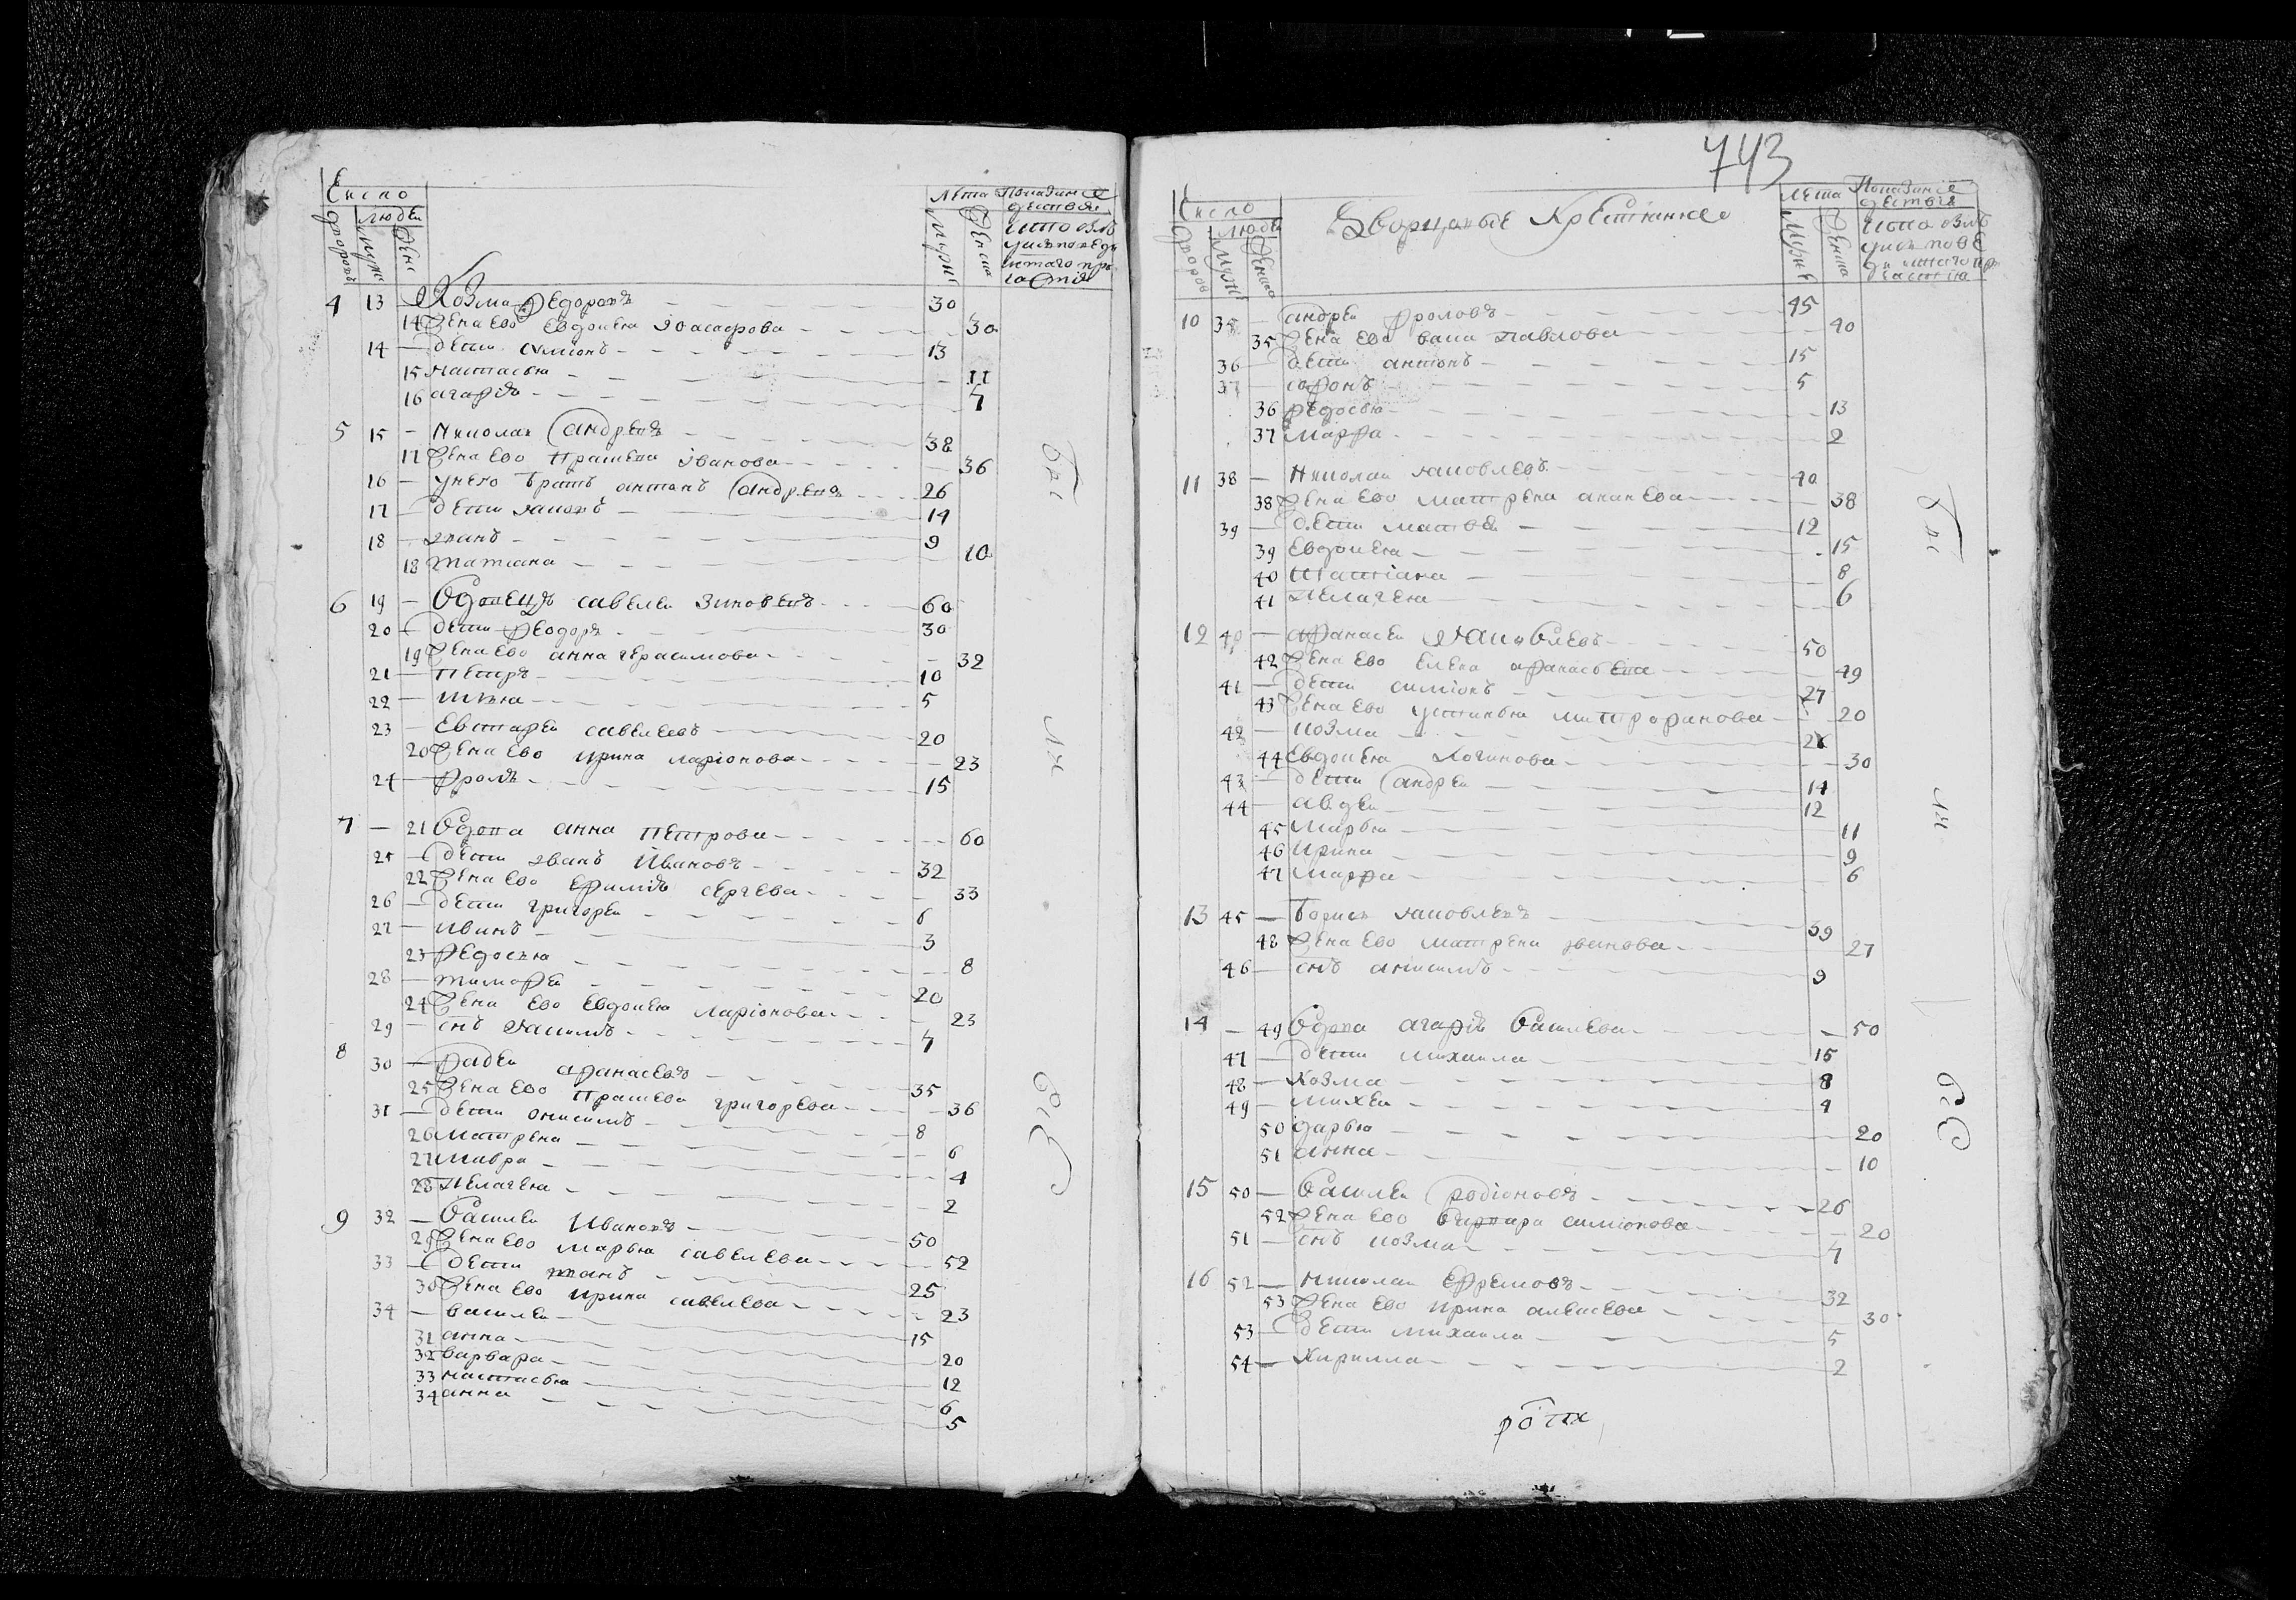 Число
Лета Показание действа
дворовъ людеи муж жен
муже женска
4 13 Козма Федоровъ 30
14 Жена ево евдокея 30
14 дети симионъ 13
15 настасья 11
16 агафiя 7
5 15 Николаи андревъ 38
17 Жена ево Прасковя iванова 36
16 у него братъ антонъ андревъ 26
17 дети яковъ 14
18 иванъ 9
18 татiана 10
6 19 Вдовецъ савелеи зиновевъ 60
20 дети Феодоръ 30
19 Жена ево анна герасимова 32
21 Петръ 10
22 илья 5
23 Евстафеи савелевъ 20
20 Жена ево ирина ларiонова 23
24 фролъ 15
7 21 Вдова анна Петрова 60
25 дети iванъ Ивановъ 32
22 Жена ево ефимiя сергева 33
26 дети григореи 6
27 иванъ 3
23 Федосья 8
28 тимофеи 20
24 Жена ево Евдокея ларiонова 23
29 снъ 7
8 30 фадеи афанасевъ 35
25 Жена ево григорева 36
31 дети онисимъ 8
26 матрена 6
27 мавра 4
28 Пелагея 2
9 32 Василеи Ивановъ 50
29 Жена ево марья савелева 52
33 дети иванъ 25
30 Жена ево ирина савелева 23
34 василеи 15
31 анна 20
32 варвара 12
33 настасья 6
34 анна 5
743
Число
Дворцовые Крестьяне
Лета Показание действа
дворовъ людеи муже женска
муже женска
10 35 андреи фроловъ 45
35 Жена ево Павлова 40
36 дети антонъ 15
37 софонъ 5
36 федосья 13
37 марфа 2
11 38 Николаи яковлевъ 40
38 Жена ево матрена ананева 38
39 дети матвеи 12
39 Евдокея 15
40 татiана 8
41 Пелагея 6
12 40 афанасеи яковлевъ 50
42 Жена ево елена афанасьева 49
41 дети симiонъ 27
43 Жена ево устинья митрофанова 20
42 козма
44 Евдокея логинова 30
43 дети андреи 14
44 авдеи 12
45 марья 11
46 ирина 9
47 марфа 6
13 45 борисъ яковлевъ 39
48 Жена ево матрена iванова 27
46 снъ анисимъ 9
14 49 Вдова агафiя Василева 50
47 дети михаила 15
48 Козма 8
49 михеи 4
50 дарья 20
51 анна 10
15 50 Василеи родiоновъ 26
52 Жена ево варвара симiонова 20
51 снъ козма 7
16 52 николаи Ефремовъ 32
53 Жена ево ирина алексева 30
53 дети михаила 5
54 Кирилла 2